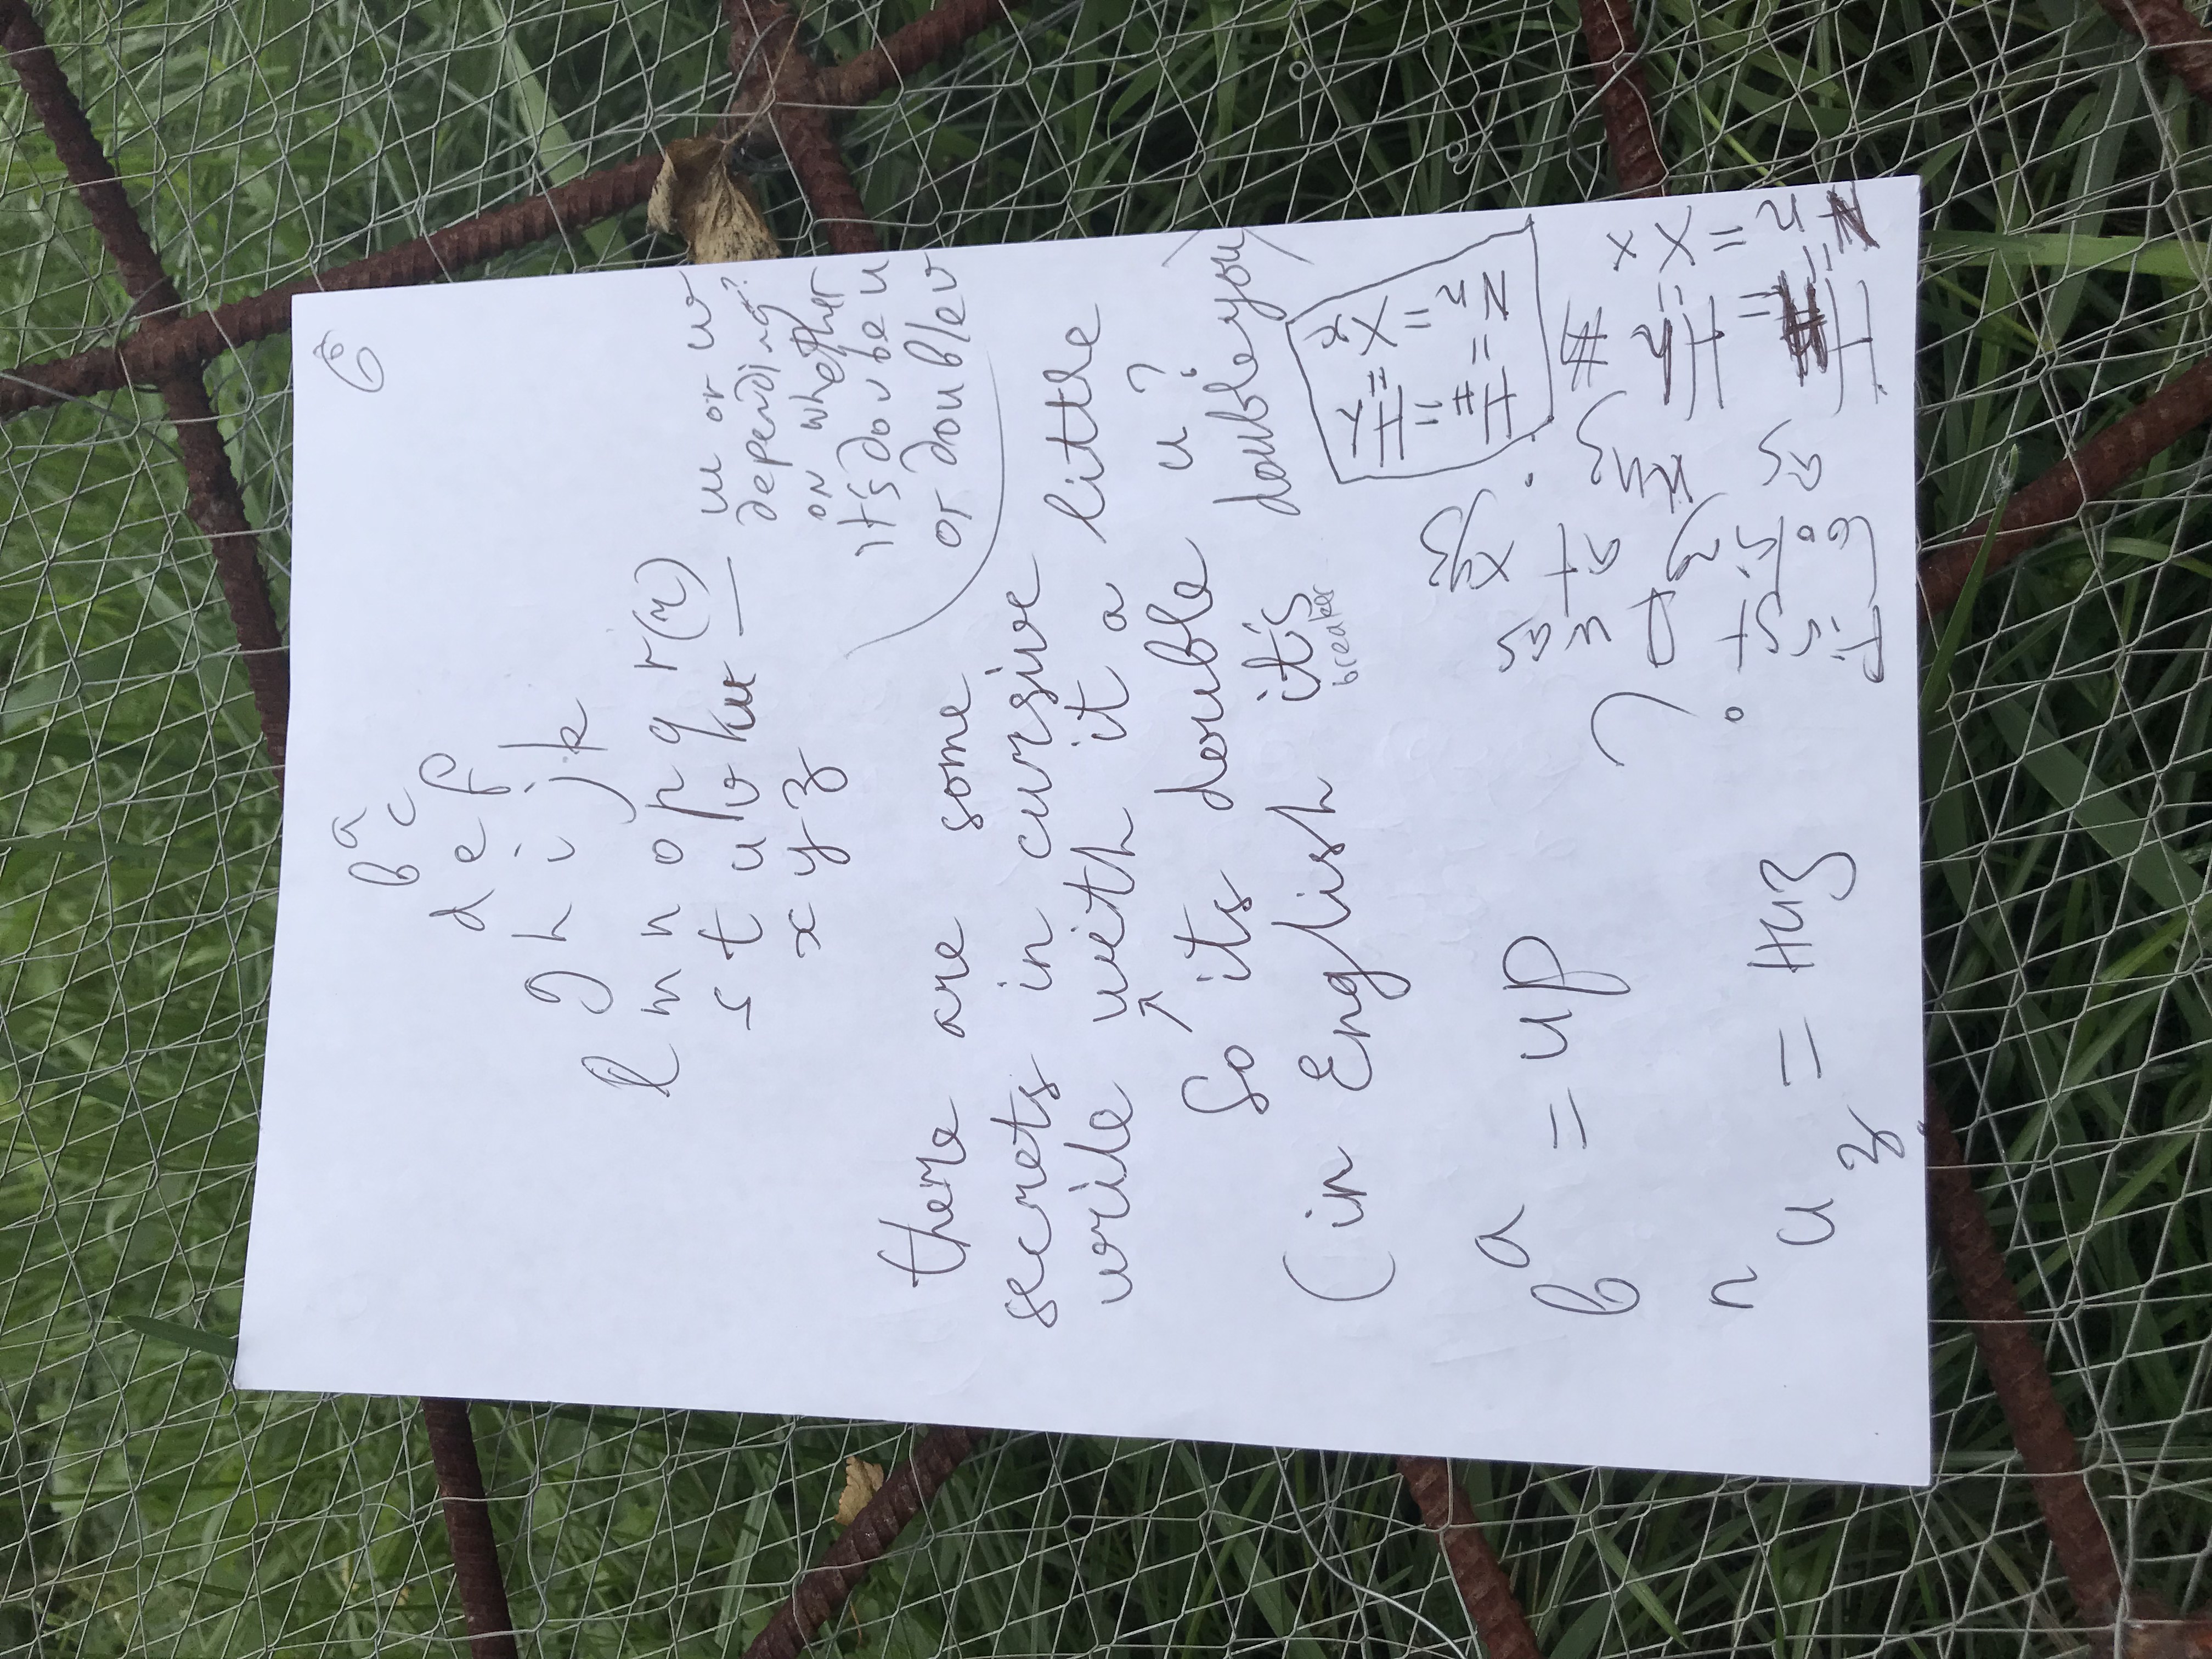 a
b c
d e f
g h i j k
l m n o p q r (r)
s t u v w — w or w
depending?
on whether
it's doube u
or double v
x y z
there are some
secrets in cursive
write with it a little
So its double u?
(in English it's doubleyou)
breaker
b a = up
n u z = Huz
?
First I was
looking at xyz
as
HH = Hh
Nn = Xx
= X x